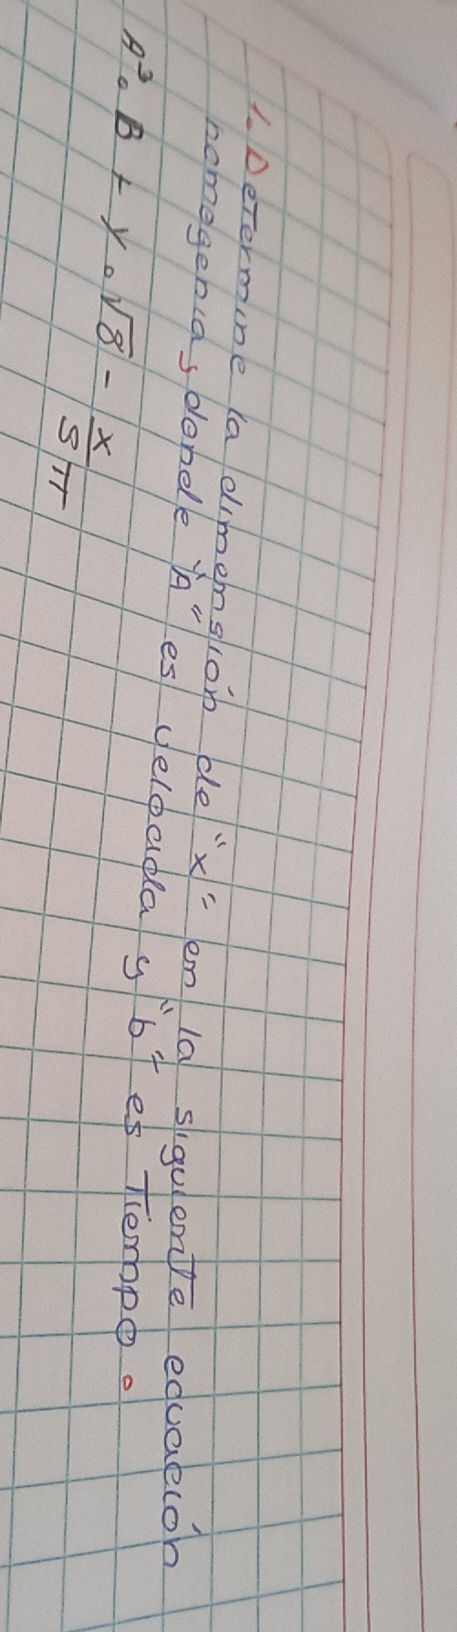 1. Determine la dimensión de "x" en la siguiente ecuación
homogenia, donde "A" es velocida y "b" es Tiempo.
A³. B + y. √8 - x/5π